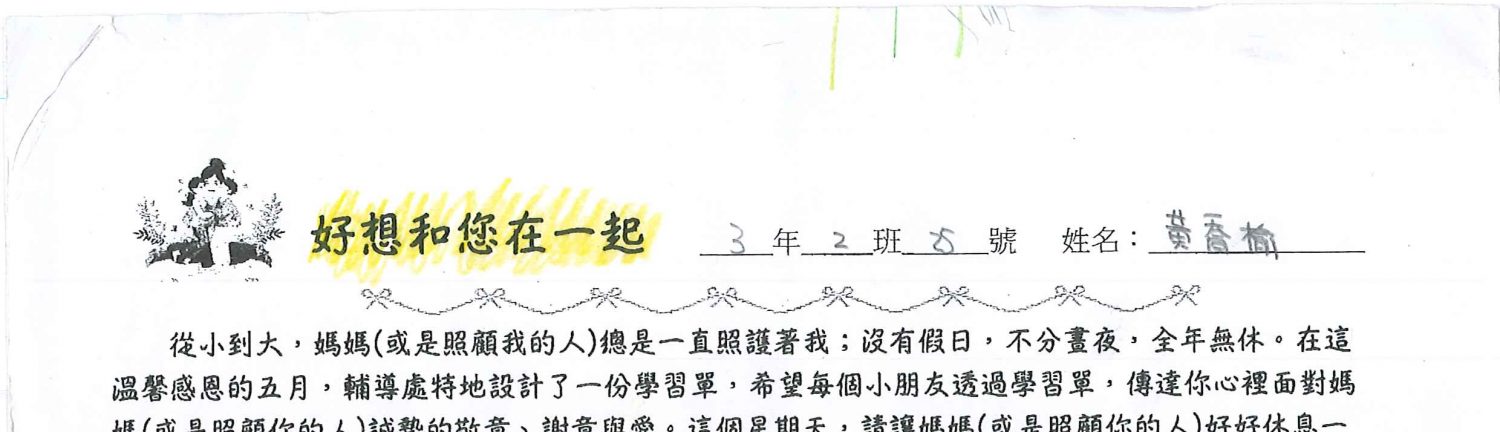 好想和您在一起 3年2班25號 姓名：黃喬榆
從小到大，媽媽(或是照顧我的人)總是一直照護著我；沒有假日，不分晝夜，全年無休。在這
溫馨感恩的五月，輔導處特地設計了一份學習單，希望每個小朋友透過學習單，傳達你心裡面對媽
媽(或是照顧你的人)誠摯的敬意、謝意與愛。這個星期天，請讓媽媽(或是照顧你的人)好好休息一